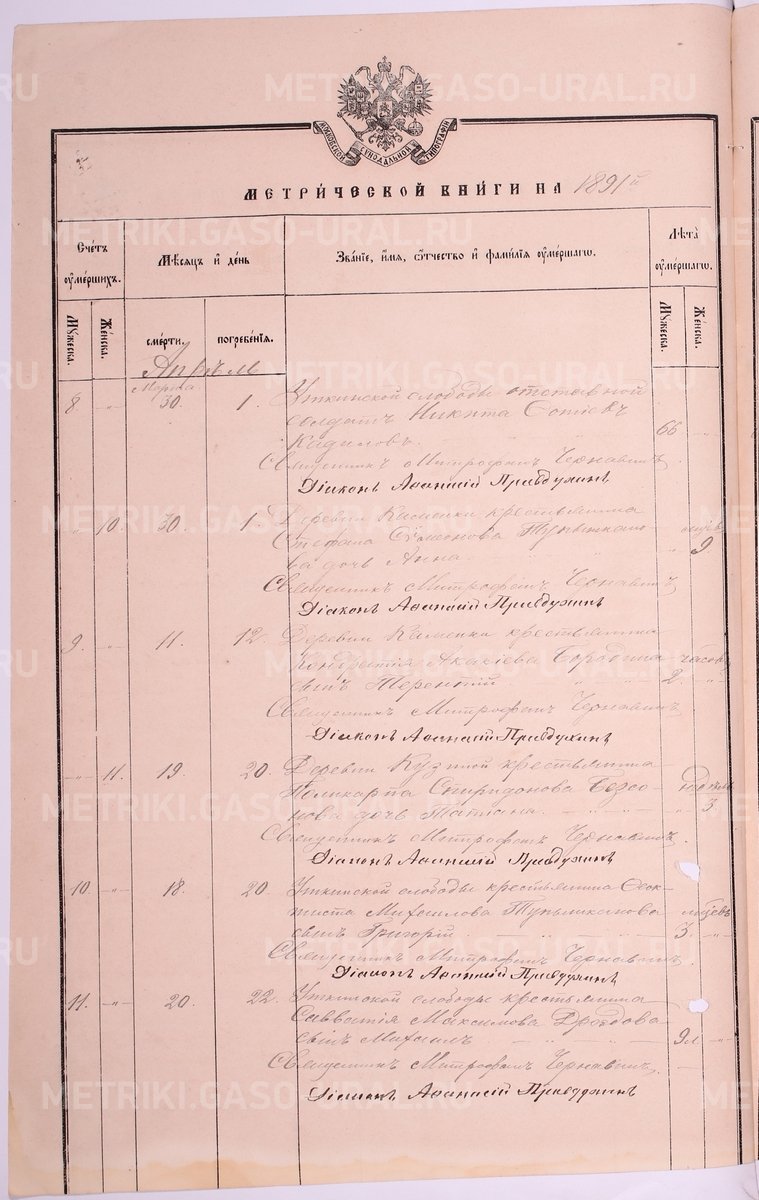 METRIKI.GASO-URAL.RU
МОСКОВСКОЙ СѴНОДАЛЬНОЙ ТИПОГРАФІИ
МЕТРИ́ЧЕСКОЙ КНИ́ГИ НА 1891й
Сче́тъ ᲂумéршихъ.
Мѣ́сяцъ и҆ де́нь
Зва́нїе, и҆́мя, ѻ҆́тчество и҆ фами́лїя ᲂу҆ме́ршагѡ.
Лѣ́та ᲂу҆ме́ршагѡ.
Му́жеска.
Же́нска.
сме́рти.
погребе́нїя.
Му́жеска.
Же́нска.
Апрѣль
Марта
8 -"- 30. 1. Уткинской слободы отставной
солдатъ Никита
Кадиловъ. 66 -"-
Священникъ Митрофанъ Чернавинъ.
Діаконъ Аѳанасій Правдухинъ
" 10. 30. 1. Деревни Каменки крестьянина
Стефана Сѵмеонова
ва дочь Анна " 9
Священникъ Митрофанъ Чернавинъ
Діаконъ Аѳанасій Правдухинъ
9. -"- 11. 12. Деревни Каменки крестьянина
Акакіева Бородина часов
сынъ Терентій 2. -"-
Священникъ Митрофанъ Чернавинъ
Діаконъ Аѳанасій Правдухинъ
-"- 11. 19 20. Деревни Кузиной крестьянина
Поликарпа Спиридонова Безсо-
нова дочь Татіана. -"- 3.
Священникъ Митрофанъ Чернавинъ
Діаконъ Аѳанасій Правдухинъ
10. -"- 18. 20 Уткинской слободы крестьянина Ѳеок-
тиста Михаилова
сынъ Григорій 3. -"-
Священникъ Митрофанъ Чернавинъ.
Діаконъ Аѳанасій Правдухинъ
11. -"- 20. 22. Уткинской слободы крестьянина
Савватія Максимова Дроздова
сынъ Михаилъ 9 м. -"-
Священникъ Митрофанъ Чернавинъ.
Діаконъ Аѳанасій Правдухинъ